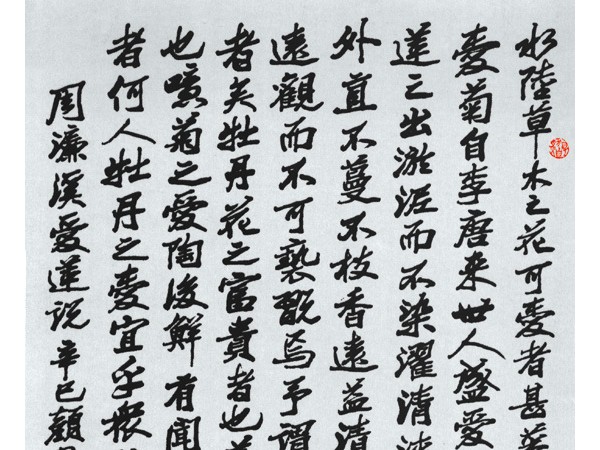 水陸草木之花可愛者甚蕃
愛菊自李唐来世人盛愛
蓮之出淤泥而不染濯清
外直不蔓不枝香遠益清
遠觀而不可褻翫焉予謂
者矣牡丹花之富貴者也
也噫菊之愛陶後鮮有聞
者何人牡丹之愛宜乎衆
周濂溪愛蓮説 辛巳顏